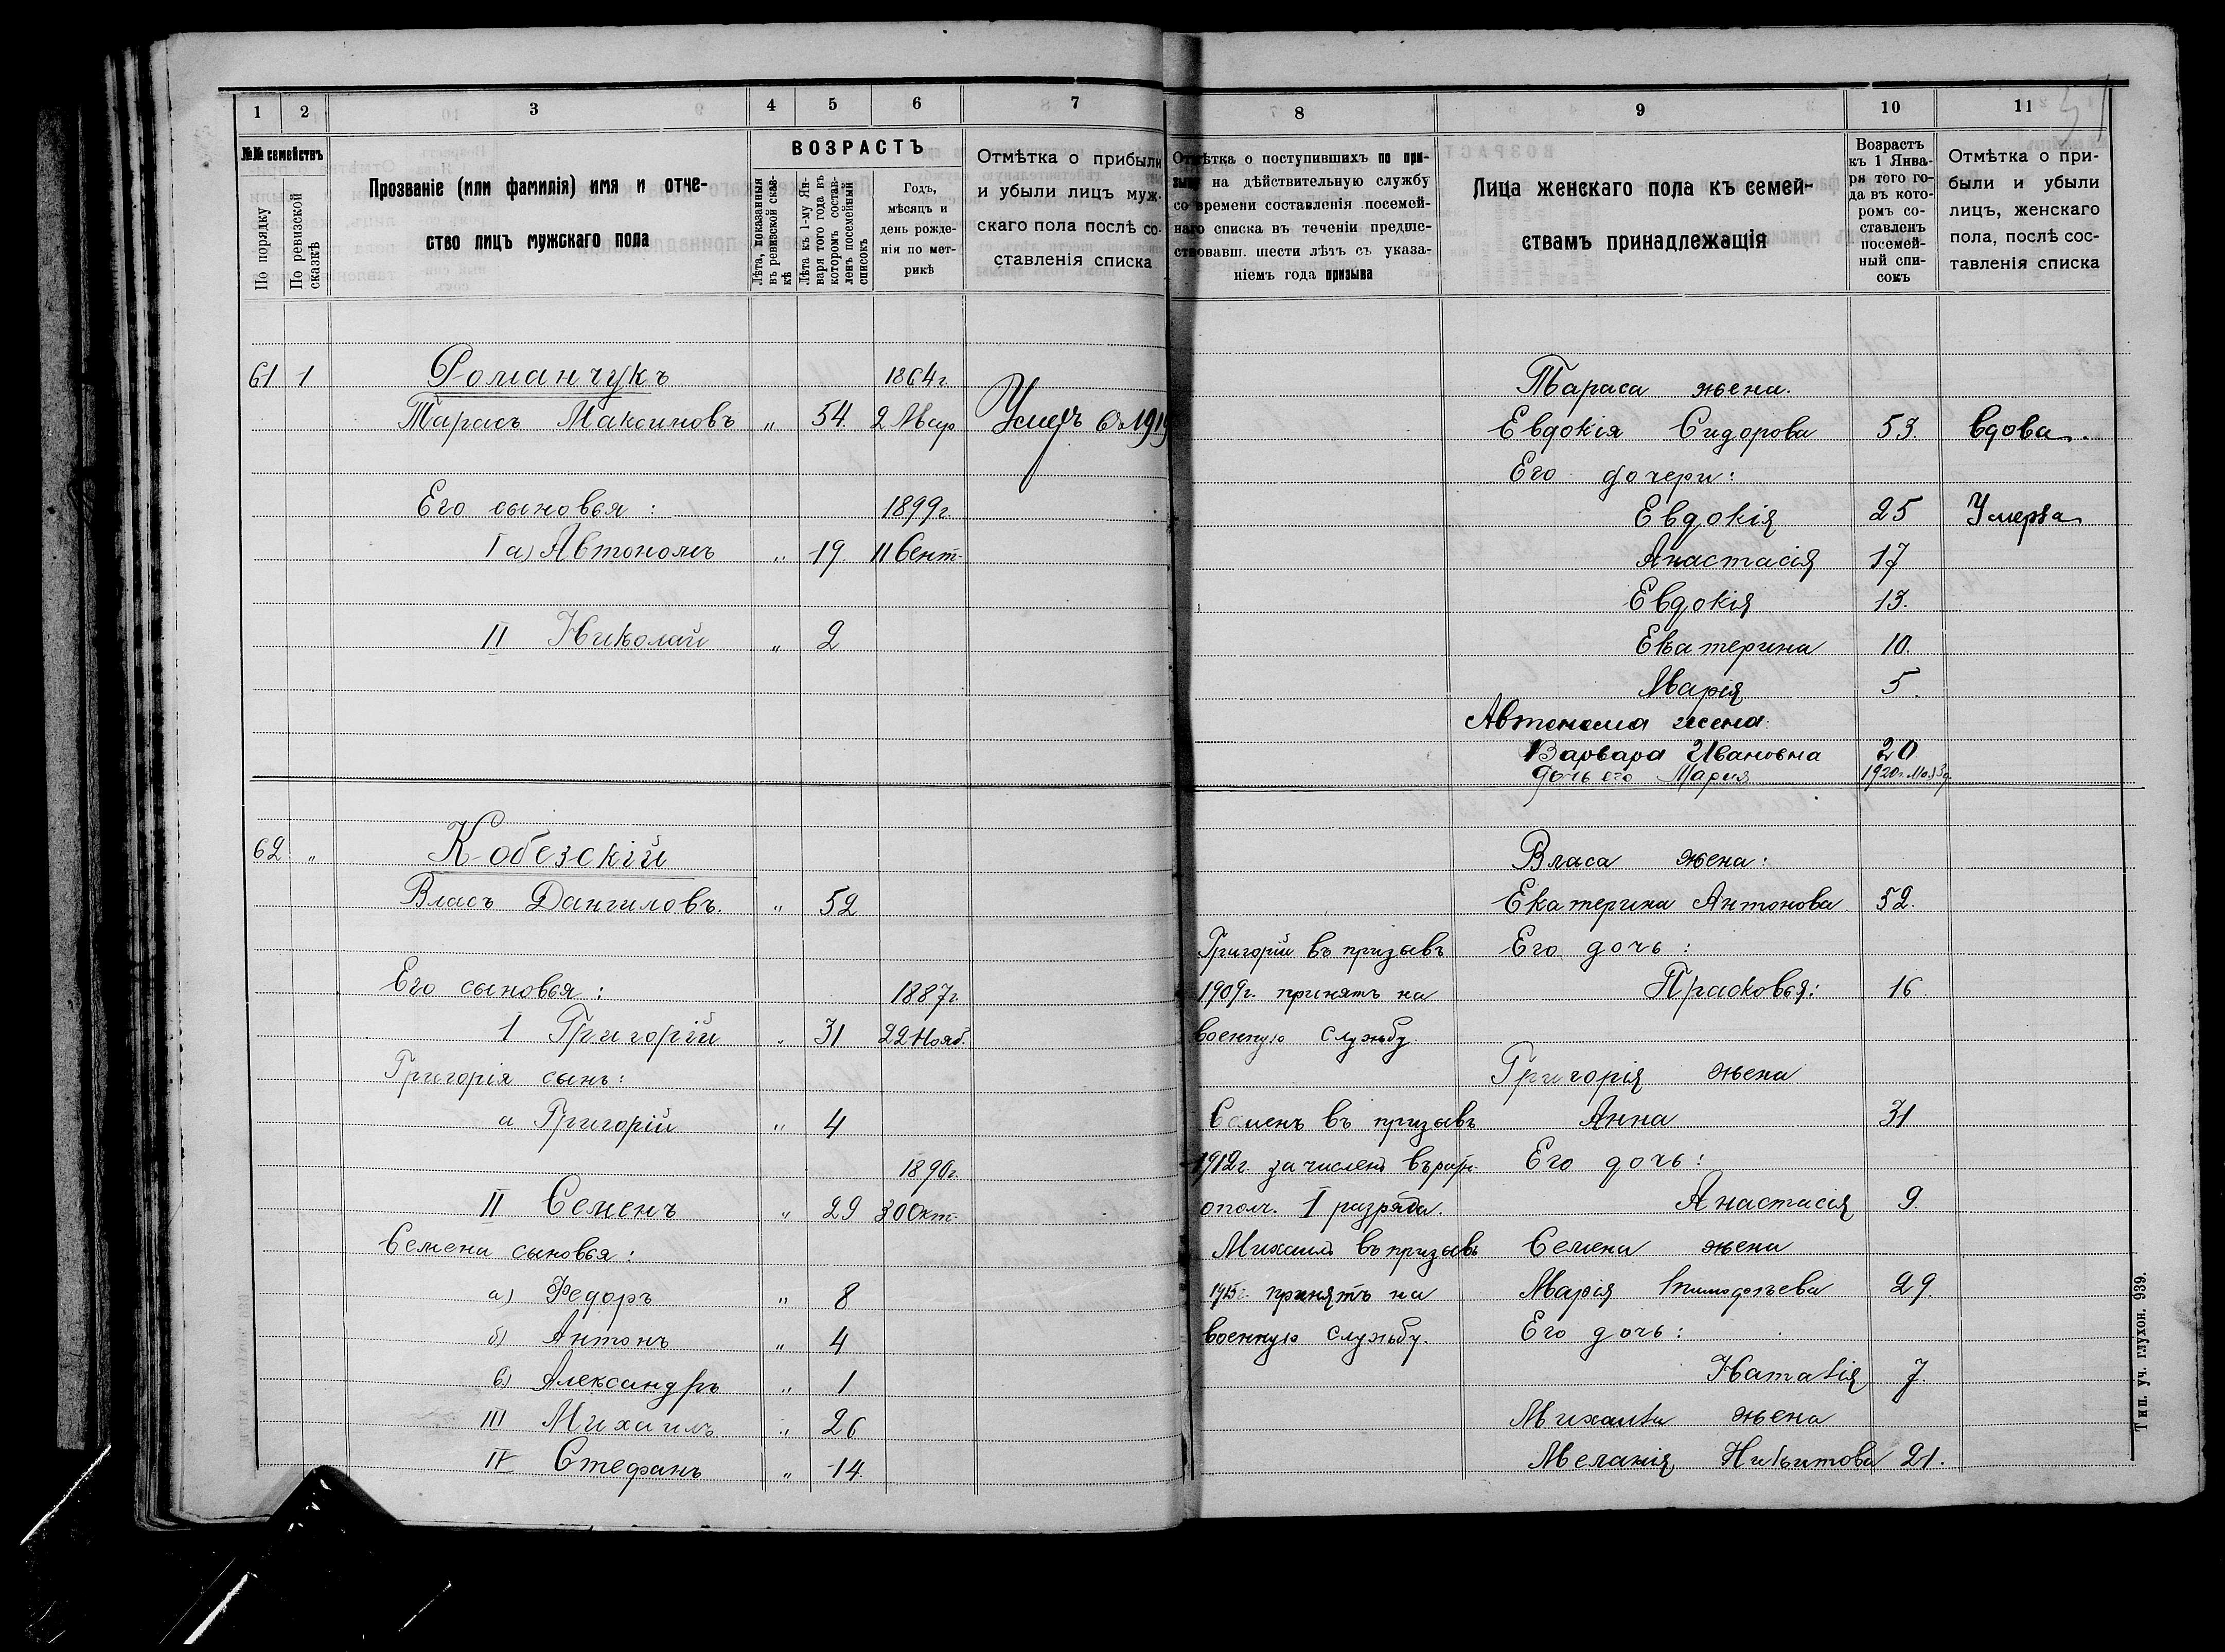 1 2 3 4 5 6 7
№№ семействъ
По порядку
По ревизской сказкѣ
Прозваніе (или фамилія) имя и отче-
ство лицъ мужскаго пола
ВОЗРАСТЪ
Лѣта, показанныя
въ ревизской сказ-
кѣ
Лѣта къ 1-му Ян-
варя того года въ
которомъ состав-
ленъ посемейный
списокъ
Годъ,
мѣсяцъ и
день рожде-
нія по мет-
рикѣ
Отмѣтка о прибыли
и убыли лицъ муж-
скаго пола послѣ со-
ставленія списка
61 1 Романчукъ 1864г.
Тарасъ Максимовъ „ 54. 2 Мар Умеръ въ 1919
Его сыновья: 1899г.
I а) Автономъ „ 19. 11 Сент.
II Николай „ 2
62 „ Кобезскій
Власъ Даниловъ. „ 52
Его сыновья: 1887г.
I Григорій „ 31 22 Нояб.
Григорія сынъ:
а Григорій „ 4
1890г.
II Семенъ „ 29 30 Окт.
Семена сыновья:
а) Федоръ „ 8
б) Антонъ „ 4
в) Александръ „ 1
III Михаилъ „ 26
IV Стефанъ „ 14
8 9 10 11
51
Отмѣтка о поступившихъ по при-
зыву на дѣйствительную службу
со времени составленія посемей-
наго списка въ теченіи предше-
ствовавш. шести лѣтъ съ указа-
ніемъ года призыва
Лица женскаго пола къ семей-
ствамъ принадлежащія
Возрастъ
къ 1 Янва-
ря того го-
да въ кото-
ромъ со-
ставленъ
посемей-
ный спи-
сокъ
Отмѣтка о при-
были и убыли
лицъ, женскаго
пола, послѣ сос-
тавленія списка
Тараса жена.
Евдокія Сидорова 53. вдова.
Его дочери:
Евдокія 25 Умерла
Анастасія 17
Евдокія 13.
Екатерина 10.
Марія 5.
Автонома жена:
Варвара Ивановна 20
Дочь его Мария 1920г.
Власа жена:
Екатерина Антонова 52.
Григорій въ призывъ Его дочь:
1909г. принятъ на Прасковья: 16
военную службу.
Григорія жена
Семенъ въ призывъ Анна 31
1912г. зачисленъ въ ратн. Его дочь:
опол. I разряда. Анастасія 9
Михаилъ въ призывъ Семена жена
1915г. принятъ на Марія 29.
военную службу. Его дочь:
Наталія 7
Михаила жена
Меланія Никитова 21.
Тип. уч. глухон. 939.